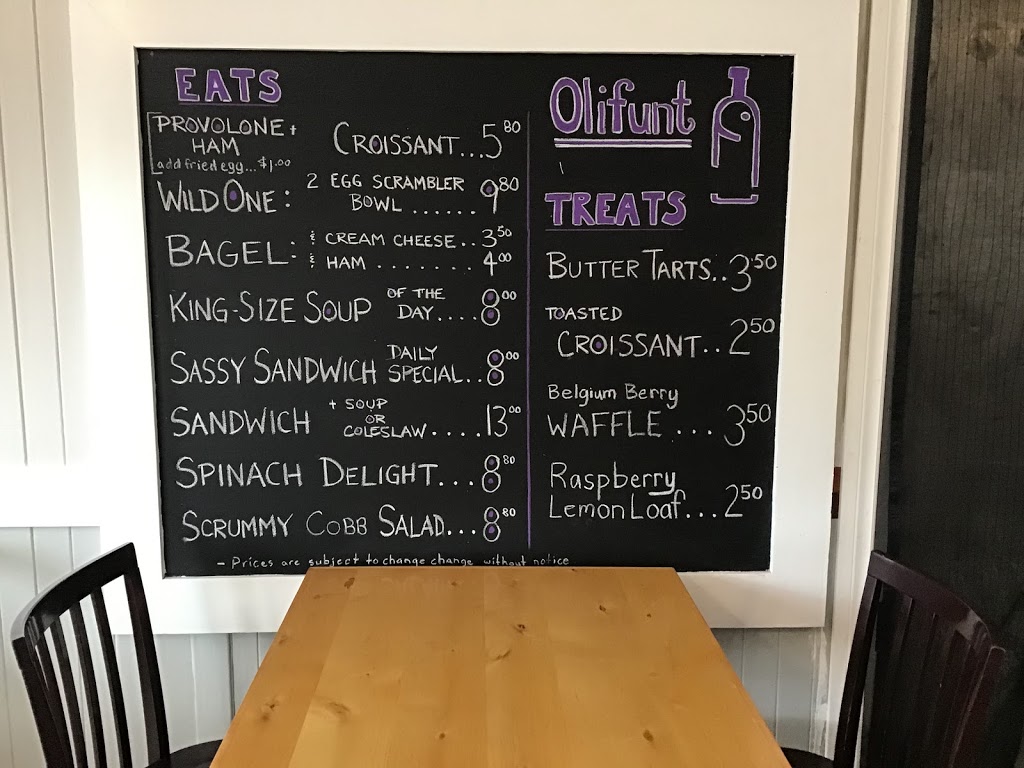 EATS
PROVOLONE +
HAM
add fried egg... $1.00
CROISSANT...5 80
WILD ONE: 2 EGG SCRAMBLER
BOWL ...... 9 80
BAGEL: & CREAM CHEESE..3 50
& HAM ........ 4 00
KING-SIZE SOUP OF THE
DAY.... 8 00
SASSY SANDWICH DAILY
SPECIAL.. 8 00
SANDWICH + SOUP
OR
COLESLAW....13 00
SPINACH DELIGHT... 8 80
SCRUMMY COBB SALAD... 8 80
- Prices are subject to change change without notice
Olifunt
TREATS
BUTTER TARTS..3.50
TOASTED
CROISSANT..2 50
Belgium Berry
WAFFLE ...3 50
Raspberry
Lemon Loaf...2 50